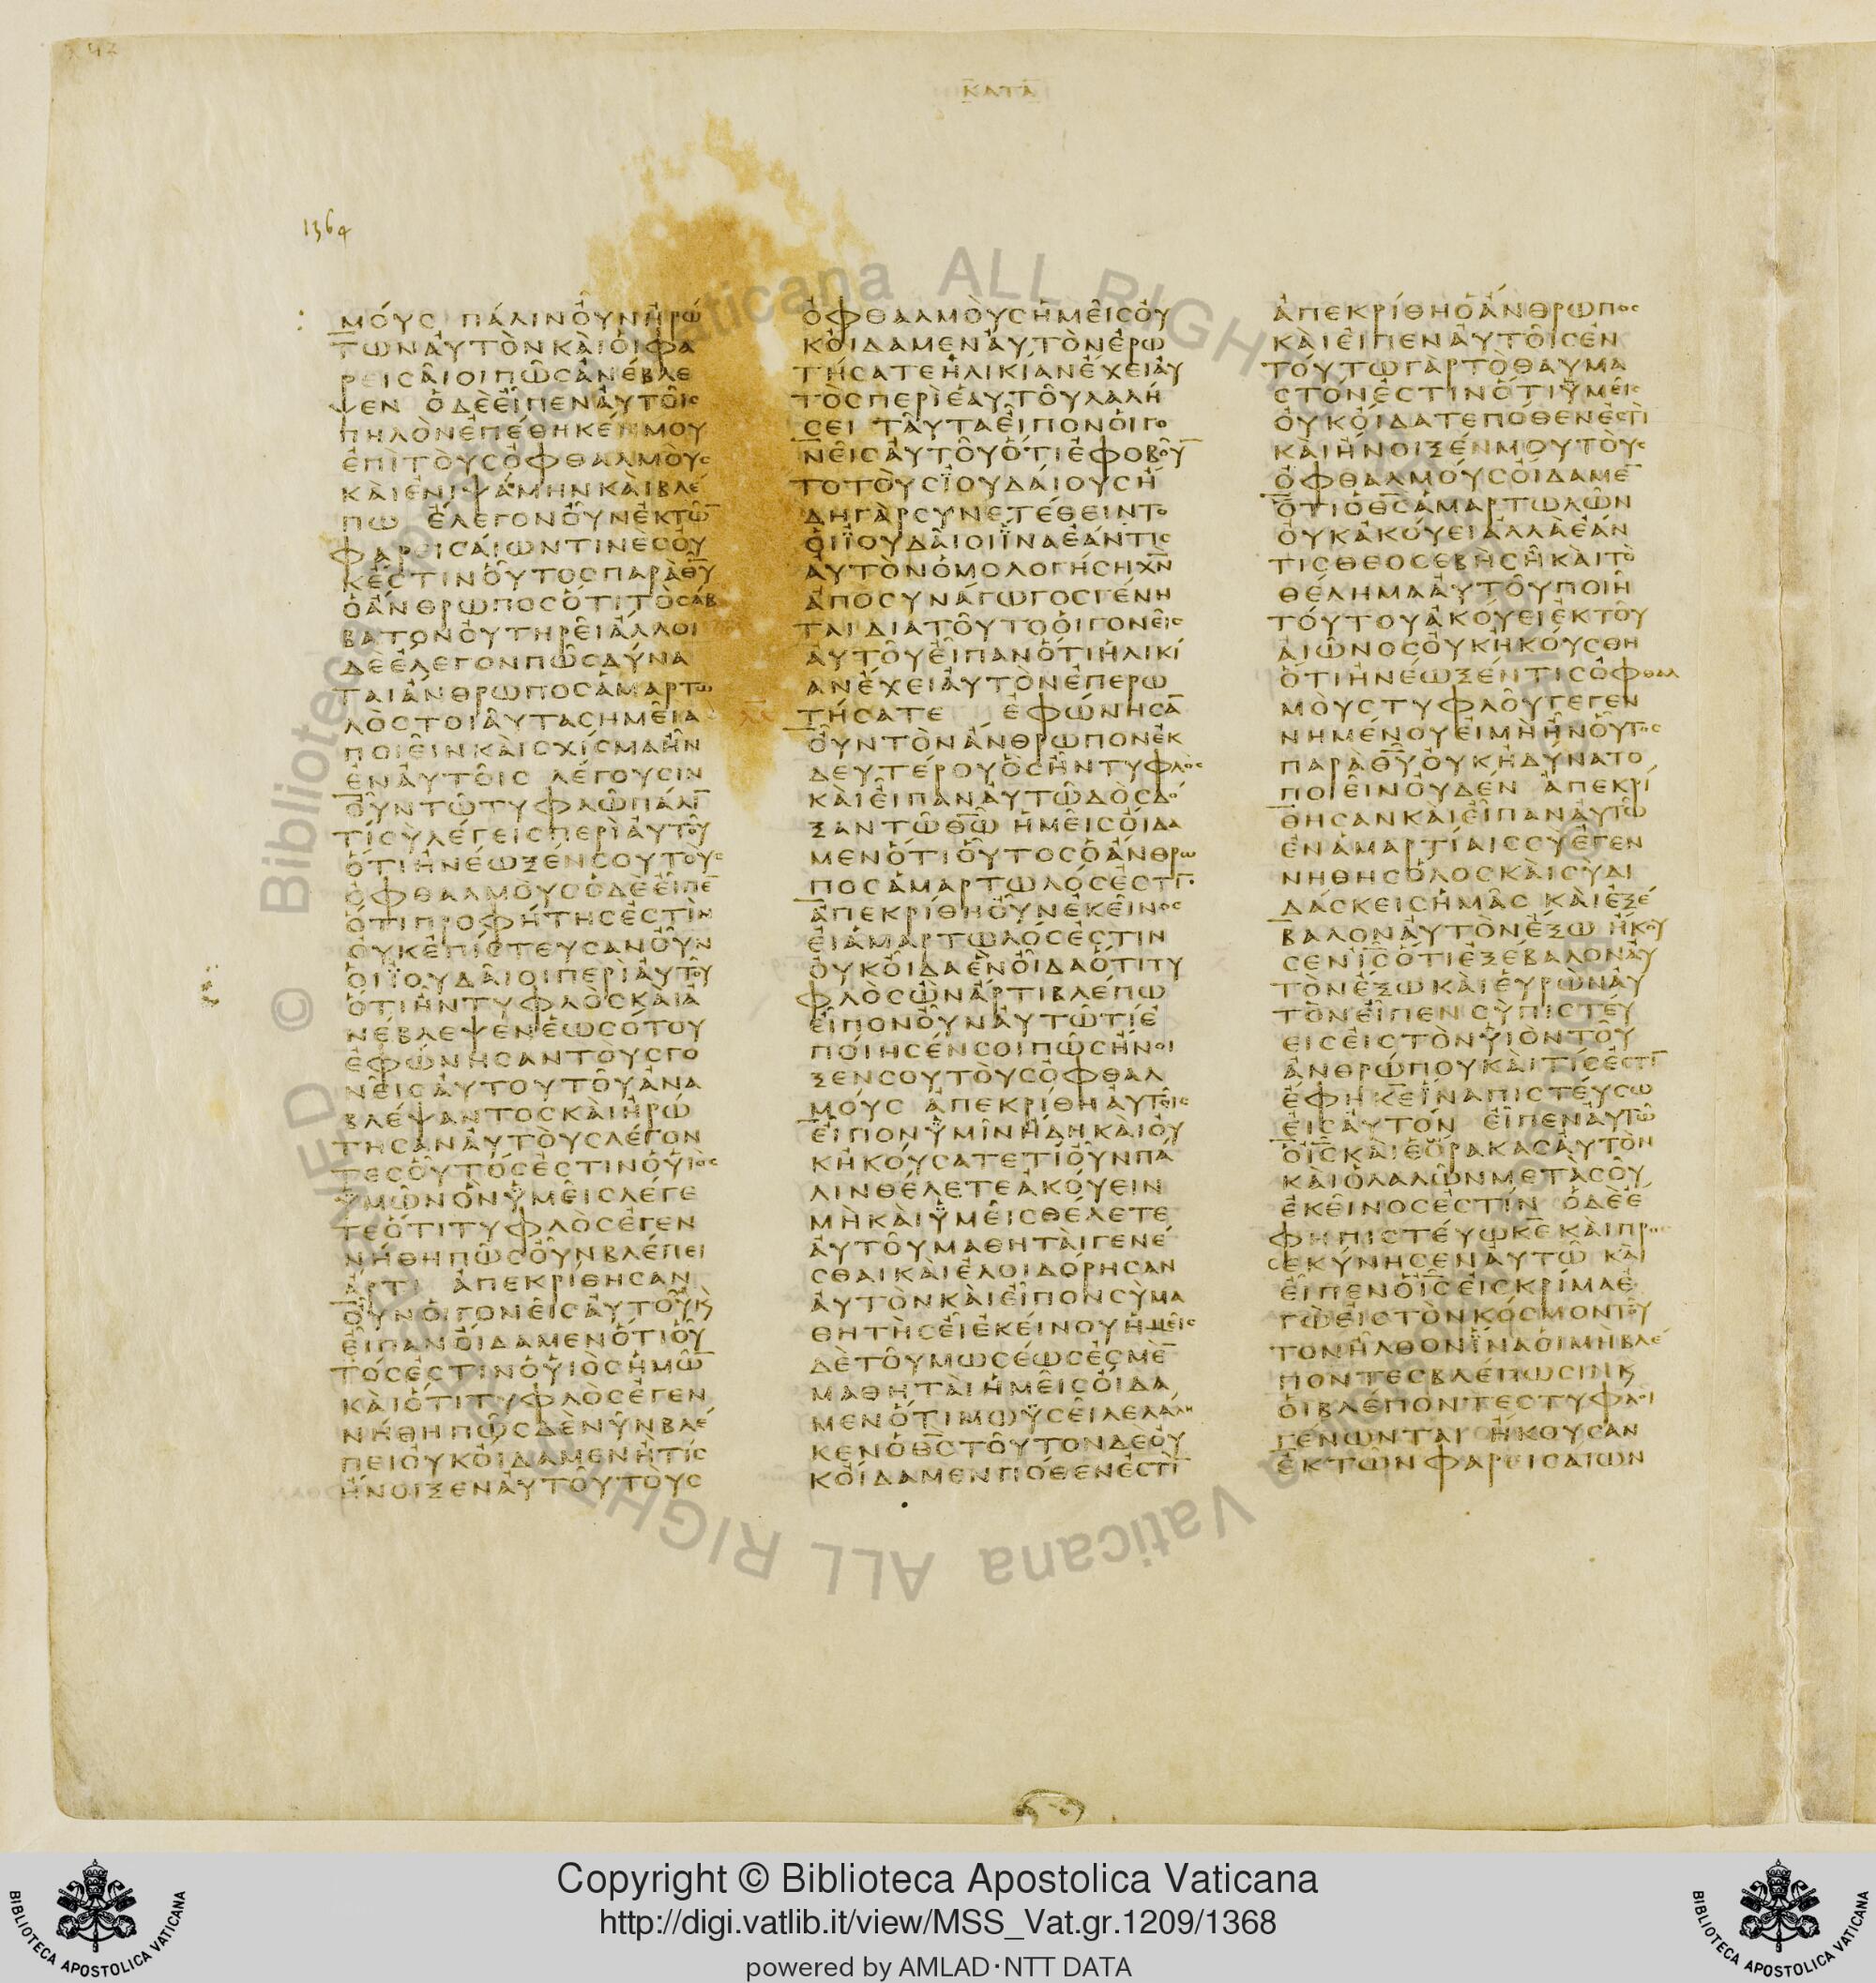 ΚΑΤΑ
1364
ΜΟΥϹ ΠΑΛΙΝΟΥΝΗΡΩ
ΤΩΝΑΥΤΟΝΚΑΙΟΙΦΑ
ΡΕΙϹΑΙΟΙΠΩϹΑΝΕΒΛΕ
ΨΕΝ ΟΔΕΕΙΠΕΝΑΥΤΟΙϹ
ΠΗΛΟΝΕΠΕΘΗΚΕΝΜΟΥ
ΕΠΙΤΟΥϹΟΦΘΑΛΜΟΥϹ
ΚΑΙΕΝΙΨΑΜΗΝΚΑΙΒΛΕ
ΠΩ ΕΛΕΓΟΝΟΥΝΕΚΤΩ̅
ΦΑΡΕΙϹΑΙΩΝΤΙΝΕϹΟΥ
ΚΕϹΤΙΝΟΥΤΟϹΠΑΡΑΘ̅Υ̅
ΟΑΝΘΡΩΠΟϹΟΤΙΤΟϹΑΒ
ΒΑΤΟΝΟΥΤΗΡΕΙΑΛΛΟΙ
ΔΕΕΛΕΓΟΝΠΩϹΔΥΝΑ
ΤΑΙΑΝΘΡΩΠΟϹΑΜΑΡΤΩ
ΛΟϹΤΟΙΑΥΤΑϹΗΜΕΙΑ
ΠΟΙΕΙΝΚΑΙϹΧΙϹΜΑΗΝ
ΕΝΑΥΤΟΙϹ ΛΕΓΟΥϹΙΝ
ΟΥΝΤΩΤΥΦΛΩΠΑΛΙ̅
ΤΙϹΥΛΕΓΕΙϹΠΕΡΙΑΥΤΟΥ
ΟΤΙΗΝΕΩΞΕΝϹΟΥΤΟΥϹ
ΟΦΘΑΛΜΟΥϹΟΔΕΕΙΠΕ̅
ΟΤΙΠΡΟΦΗΤΗϹΕϹΤΙΝ
ΟΥΚΕΠΙϹΤΕΥϹΑΝΟΥΝ
ΟΙΪΟΥΔΑΙΟΙΠΕΡΙΑΥΤΟΥ
ΟΤΙΗΝΤΥΦΛΟϹΚΑΙΑ
ΝΕΒΛΕΨΕΝΕΩϹΟΤΟΥ
ΕΦΩΝΗϹΑΝΤΟΥϹΓΟ
ΝΕΙϹΑΥΤΟΥΤΟΥΑΝΑ
ΒΛΕΨΑΝΤΟϹΚΑΙΗΡΩ
ΤΗϹΑΝΑΥΤΟΥϹΛΕΓΟΝ
ΤΕϹΟΥΤΟϹΕϹΤΙΝΟΥΙΟϹ
ΫΜΩΝΟΝΫΜΕΙϹΛΕΓΕ
ΤΕΟΤΙΤΥΦΛΟϹΕΓΕΝ
ΝΗΘΗΠΩϹΟΥΝΒΛΕΠΕΙ
ΑΡΤΙ ΑΠΕΚΡΙΘΗϹΑΝ
ΟΥΝΟΙΓΟΝΕΙϹΑΥΤΟΥΚ
ΕΙΠΑΝΟΙΔΑΜΕΝΟΤΙΟΥ
ΤΟϹΕϹΤΙΝΟΥΙΟϹΗΜΩ̅
ΚΑΙΟΤΙΤΥΦΛΟϹΕΓΕΝ
ΝΗΘΗΠΩϹΔΕΝΥΝΒΛΕ
ΠΕΙΟΥΚΟΙΔΑΜΕΝΗΤΙϹ
ΗΝΟΙΞΕΝΑΥΤΟΥΤΟΥϹ
ΟΦΘΑΛΜΟΥϹΗΜΕΙϹΟΥ
ΚΟΙΔΑΜΕΝΑΥΤΟΝΕΡΩ
ΤΗϹΑΤΕΗΛΙΚΙΑΝΕΧΕΙΑΥ
ΤΟϹΠΕΡΙΕΑΥΤΟΥΛΑΛΗ
ϹΕΙ ΤΑΥΤΑΕΙΠΟΝΟΙΓΟ
ΝΕΙϹΑΥΤΟΥΟΤΙΕΦΟΒΟΥ̅
ΤΟΤΟΥϹΪΟΥΔΑΙΟΥϹΗ
ΔΗΓΑΡϹΥΝΕΤΕΘΕΙΝΤΟ
ΟΙΪΟΥΔΑΙΟΙΪΝΑΕΑΝΤΙϹ
ΑΥΤΟΝΟΜΟΛΟΓΗϹΗΧ̅Ν̅
ΑΠΟϹΥΝΑΓΩΓΟϹΓΕΝΗ
ΤΑΙΔΙΑΤΟΥΤΟΟΙΓΟΝΕΙϹ
ΑΥΤΟΥΕΙΠΑΝΟΤΙΗΛΙΚΙ
ΑΝΕΧΕΙΑΥΤΟΝΕΠΕΡΩ
ΤΗϹΑΤΕ ΕΦΩΝΗϹΑ̅
ΟΥΝΤΟΝΑΝΘΡΩΠΟΝΕΚ
ΔΕΥΤΕΡΟΥΟϹΗΝΤΥΦΛΟϹ
ΚΑΙΕΙΠΑΝΑΥΤΩΔΟϹΔΟ
ΞΑΝΤΩΘ̅Ω̅ ΗΜΕΙϹΟΙΔΑ
ΜΕΝΟΤΙΟΥΤΟϹΟΑΝΘΡΩ
ΠΟϹΑΜΑΡΤΩΛΟϹΕϹΤΙ̅
ΑΠΕΚΡΙΘΗΟΥΝΕΚΕΙΝΟϹ
ΕΙΑΜΑΡΤΩΛΟϹΕϹΤΙΝ
ΟΥΚΟΙΔΑΕΝΟΙΔΑΟΤΙΤΥ
ΦΛΟϹΩΝΑΡΤΙΒΛΕΠΩ
ΕΙΠΟΝΟΥΝΑΥΤΩΤΙΕ
ΠΟΙΗϹΕΝϹΟΙΠΩϹΗΝΟΙ
ΞΕΝϹΟΥΤΟΥϹΟΦΘΑΛ
ΜΟΥϹ ΑΠΕΚΡΙΘΗΑΥΤΟΙϹ
ΕΙΠΟΝΫΜΙΝΗΔΗΚΑΙΟΥ
ΚΗΚΟΥϹΑΤΕΤΙΟΥΝΠΑ
ΛΙΝΘΕΛΕΤΕΑΚΟΥΕΙΝ
ΜΗΚΑΙΫΜΕΙϹΘΕΛΕΤΕ
ΑΥΤΟΥΜΑΘΗΤΑΙΓΕΝΕ
ϹΘΑΙΚΑΙΕΛΟΙΔΟΡΗϹΑΝ
ΑΥΤΟΝΚΑΙΕΙΠΟΝϹΥΜΑ
ΘΗΤΗϹΕΙΕΚΕΙΝΟΥΗΜΕΙϹ
ΔΕΤΟΥΜΩϹΕΩϹΕϹΜΕ̅
ΜΑΘΗΤΑΙΗΜΕΙϹΟΙΔΑ
ΜΕΝΟΤΙΜΩΫϹΕΙΛΕΛΑΛΗ
ΚΕΝΟΘ̅Ϲ̅ΤΟΥΤΟΝΔΕΟΥ
ΚΟΙΔΑΜΕΝΠΟΘΕΝΕϹΤΙ̅
ΑΠΕΚΡΙΘΗΟΑΝΘΡΩΠΟϹ
ΚΑΙΕΙΠΕΝΑΥΤΟΙϹΕΝ
ΤΟΥΤΩΓΑΡΤΟΘΑΥΜΑ
ϹΤΟΝΕϹΤΙΝΟΤΙΫΜΕΙϹ
ΟΥΚΟΙΔΑΤΕΠΟΘΕΝΕϹΤΙ
ΚΑΙΗΝΟΙΞΕΝΜΟΥΤΟΥϹ
ΟΦΘΑΛΜΟΥϹΟΙΔΑΜΕ̅
ΟΤΙΟΘ̅Ϲ̅ΑΜΑΡΤΩΛΩΝ
ΟΥΚΑΚΟΥΕΙΑΛΛΑΕΑΝ
ΤΙϹΘΕΟϹΕΒΗϹΗΚΑΙΤΟ
ΘΕΛΗΜΑΑΥΤΟΥΠΟΙΗ
ΤΟΥΤΟΥΑΚΟΥΕΙΕΚΤΟΥ
ΑΙΩΝΟϹΟΥΚΗΚΟΥϹΘΗ
ΟΤΙΗΝΕΩΞΕΝΤΙϹΟΦΘΑΛ
ΜΟΥϹΤΥΦΛΟΥΓΕΓΕΝ
ΝΗΜΕΝΟΥΕΙΜΗΗΝΟΥΤΟϹ
ΠΑΡΑΘ̅Υ̅ΟΥΚΗΔΥΝΑΤΟ
ΠΟΙΕΙΝΟΥΔΕΝ ΑΠΕΚΡΙ
ΘΗϹΑΝΚΑΙΕΙΠΑΝΑΥΤΩ
ΕΝΑΜΑΡΤΙΑΙϹϹΥΕΓΕΝ
ΝΗΘΗϹΟΛΟϹΚΑΙϹΥΔΙ
ΔΑϹΚΕΙϹΗΜΑϹ ΚΑΙΕΞΕ
ΒΑΛΟΝΑΥΤΟΝΕΞΩ ΗΚΟΥ
ϹΕΝΙ̅Ϲ̅ΟΤΙΕΞΕΒΑΛΟΝΑΥ
ΤΟΝΕΞΩΚΑΙΕΥΡΩΝΑΥ
ΤΟΝΕΙΠΕΝϹΥΠΙϹΤΕΥ
ΕΙϹΕΙϹΤΟΝΥΙΟΝΤΟΥ
ΑΝΘΡΩΠΟΥΚΑΙΤΙϹΕϹΤΙ̅
ΕΦΗΚ̅Ε̅ΪΝΑΠΙϹΤΕΥϹΩ
ΕΙϹΑΥΤΟΝ ΕΙΠΕΝΑΥΤΩ
ΟΙ̅Ϲ̅ΚΑΙΕΟΡΑΚΑϹΑΥΤΟΝ
ΚΑΙΟΛΑΛΩΝΜΕΤΑϹΟΥ
ΕΚΕΙΝΟϹΕϹΤΙΝ ΟΔΕΕ
ΦΗΠΙϹΤΕΥΩΚ̅Ε̅ΚΑΙΠΡΟϹ
ΕΚΥΝΗϹΕΝΑΥΤΩ ΚΑΙ
ΕΙΠΕΝΟΙ̅Ϲ̅ΕΙϹΚΡΙΜΑΕ
ΓΩΕΙϹΤΟΝΚΟϹΜΟΝΤΟΥ
ΤΟΝΗΛΘΟΝΪΝΑΟΙΜΗΒΛΕ
ΠΟΝΤΕϹΒΛΕΠΩϹΙΝΚ
ΟΙΒΛΕΠΟΝΤΕϹΤΥΦΛΟΙ
ΓΕΝΩΝΤΑΙ ΗΚΟΥϹΑΝ
ΕΚΤΩΝΦΑΡΕΙϹΑΙΩΝ
Copyright © Biblioteca Apostolica Vaticana
http://digi.vatlib.it/view/MSS_Vat.gr.1209/1368
powered by AMLAD·NTT DATA
BIBLIOTECA APOSTOLICA VATICANA
BIBLIOTECA APOSTOLICA VATICANA